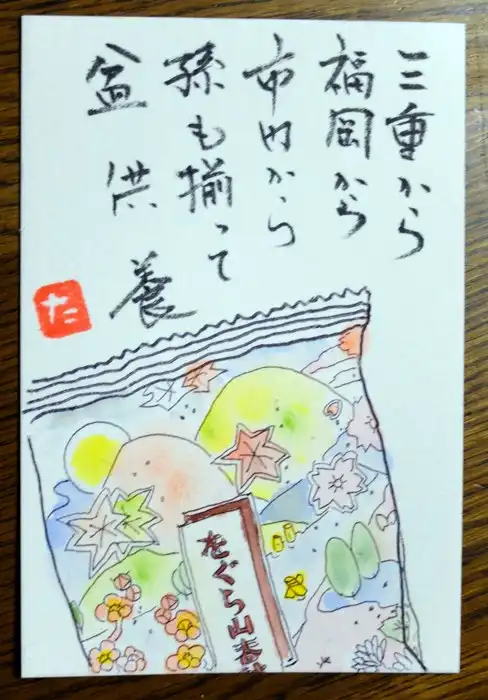 三重から
福岡から
市内から
孫も揃って
盆供養
た
をぐら山春